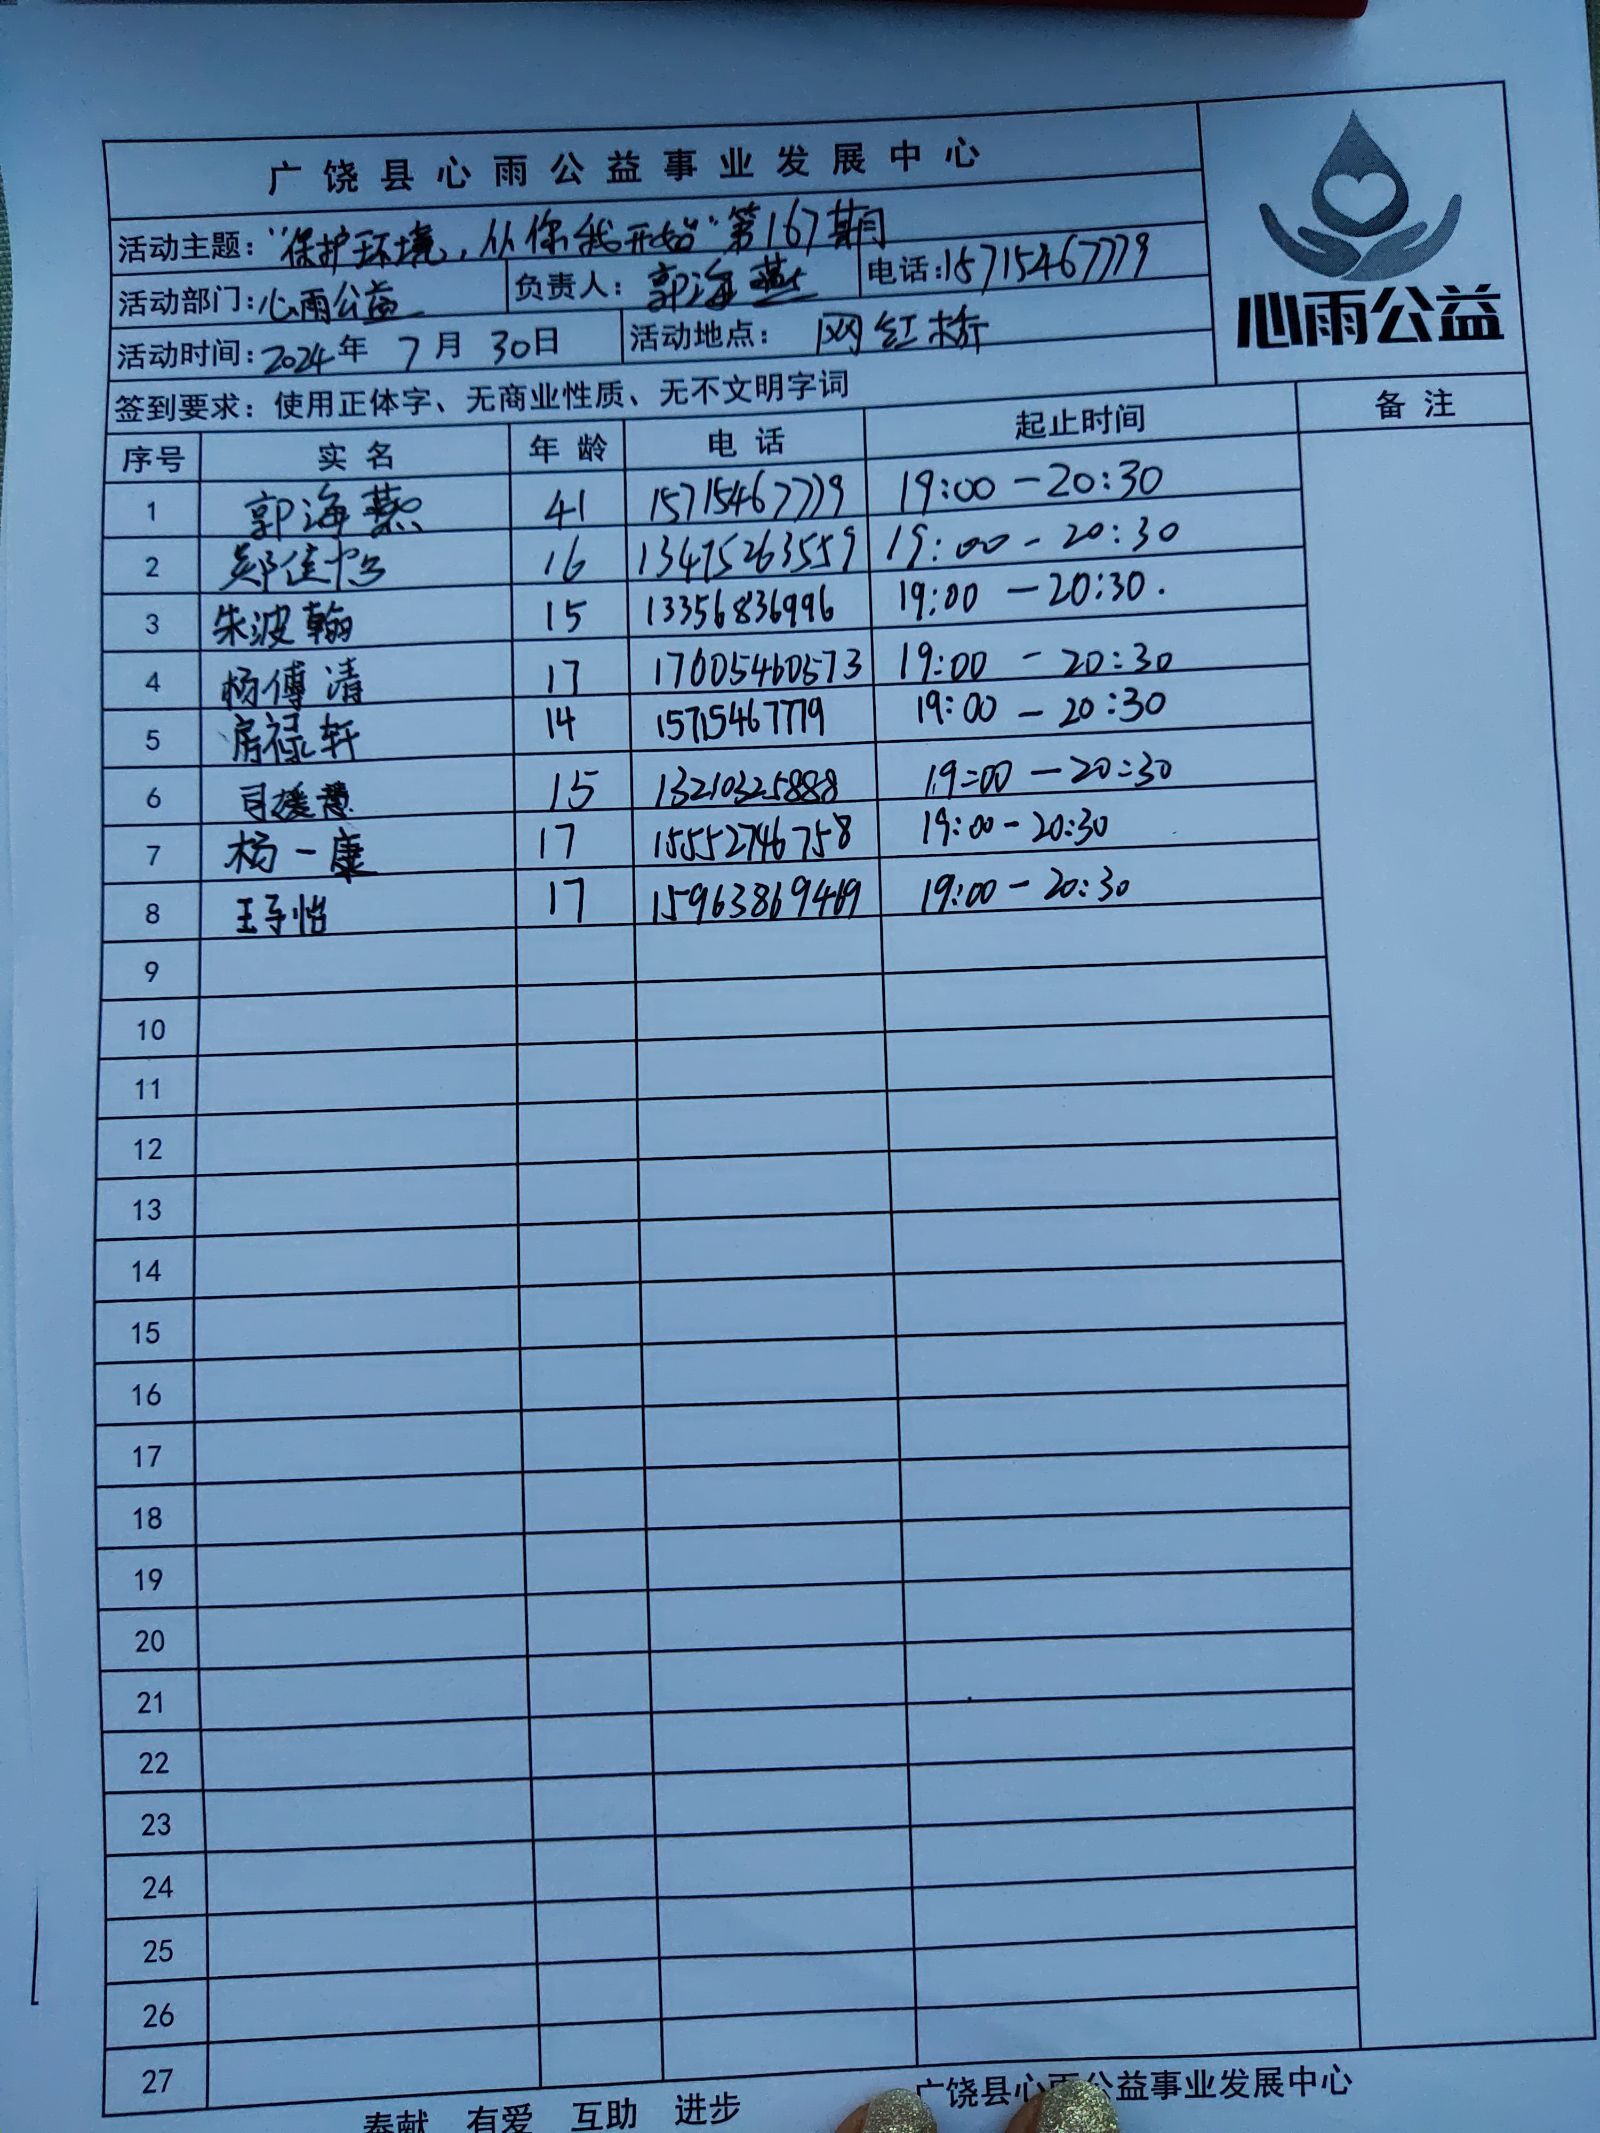 广饶县心雨公益事业发展中心
心雨公益
活动主题：“保护环境，从你我开始”第167期
活动部门：心雨公益 负责人：郭海燕 电话：15715467779
活动时间：2024年 7月 30日 活动地点：网红桥
签到要求：使用正体字、无商业性质、无不文明字词
序号 实名 年龄 电话 起止时间 备注
1 郭海燕 41 15715467779 19:00－20:30
2 郑佳怡 16 13475263559 19:00－20:30
3 朱波翰 15 13356836996 19:00－20:30.
4 杨傅清 17 17605460573 19:00－20:30
5 房禄轩 14 15715467779 19:00－20:30
6 15 13210325888 19:00－20:30
7 杨一康 17 15552746758 19:00－20:30
8 王子怡 17 15963869469 19:00－20:30
9
10
11
12
13
14
15
16
17
18
19
20
21
22
23
24
25
26
27
奉献 有爱 互助 进步 广饶县心雨公益事业发展中心